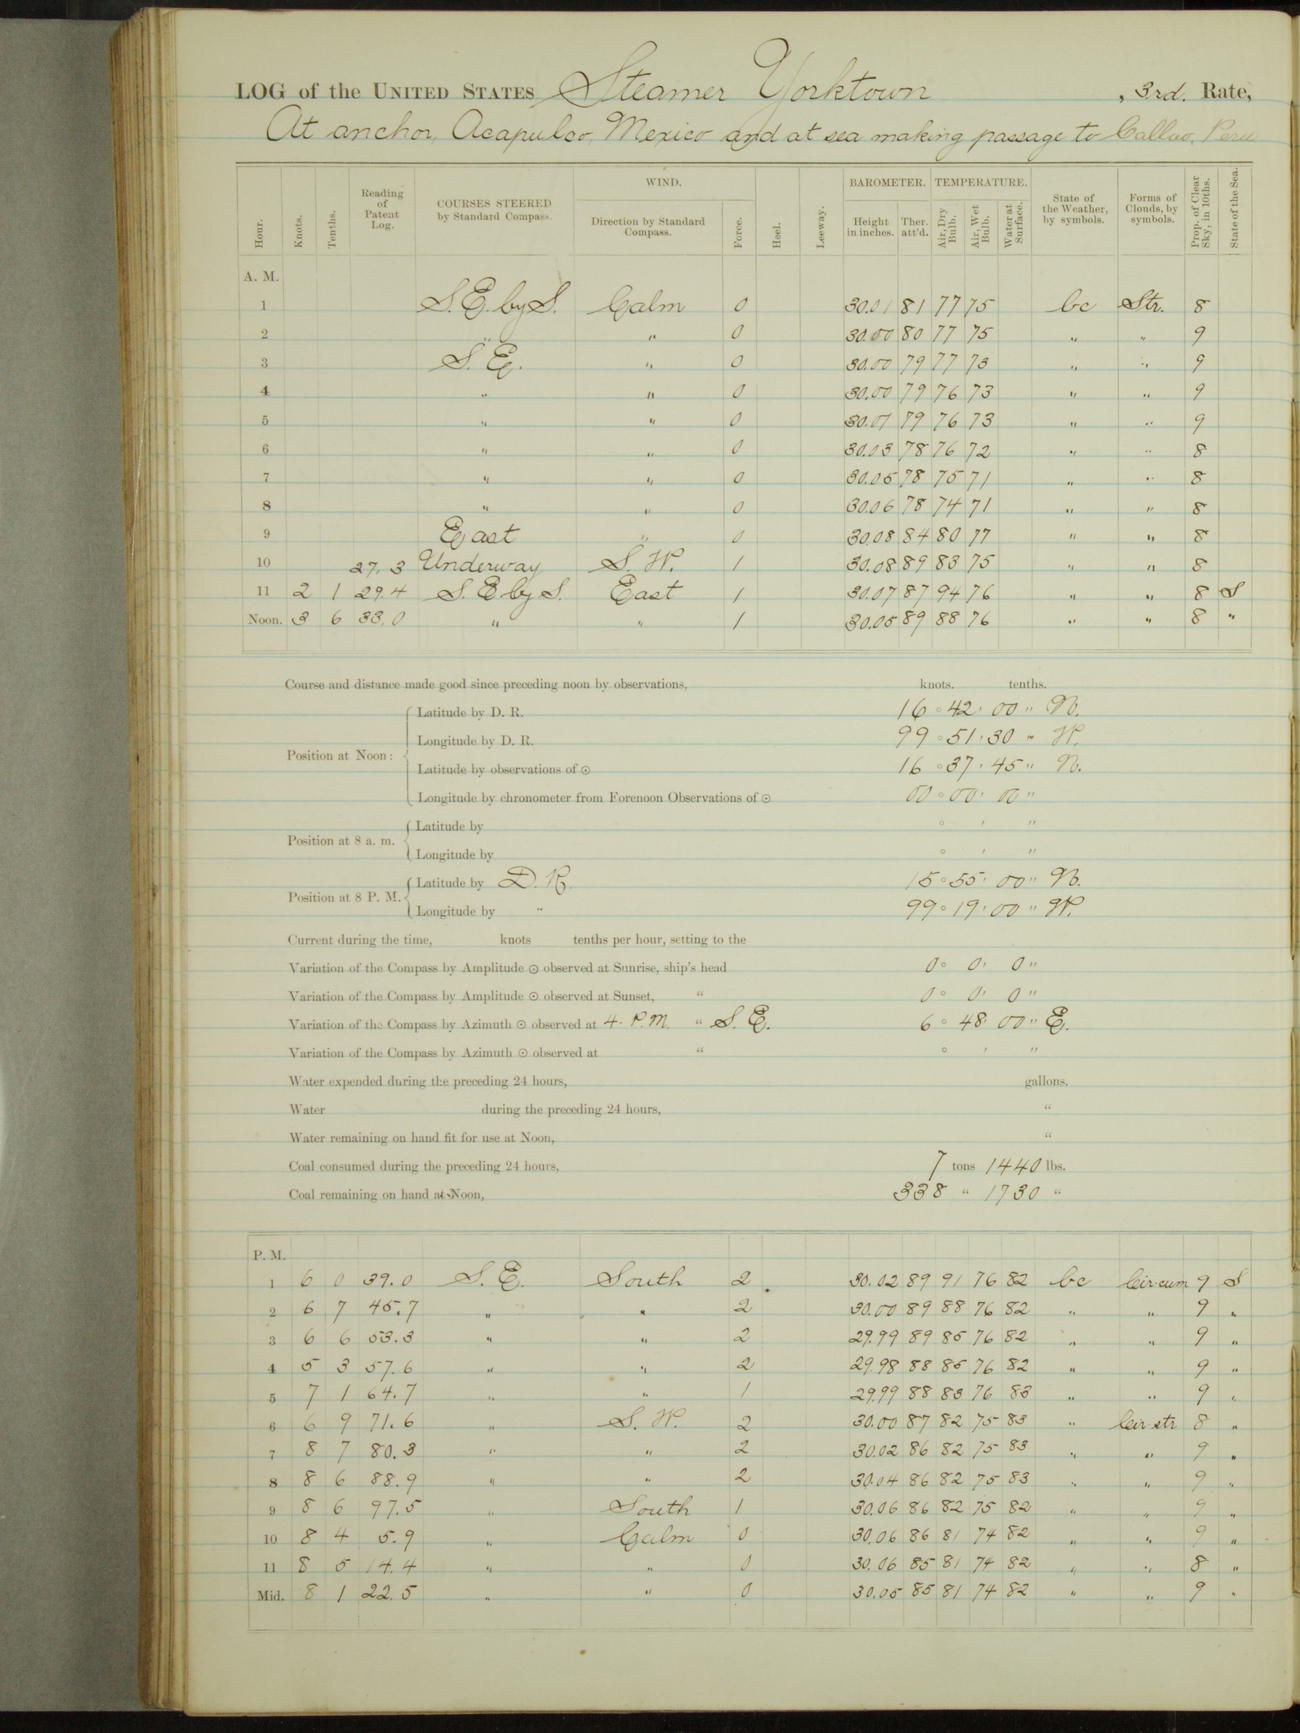 LOG of the UNITED STATES Steamer Yorktown, 3rd. Rate,
At anchor, Acapulco, Mexico and at sea making passage to Callao, Peru
Hour. Knots. Tenths. Reading of Patent Log. COURSES STEERED by Standard Compass. WIND. Direction by Standard Compass. Force. Heel. Leeway. BAROMETER. Height in inches. Ther. att'd. TEMPERATURE. Air, Dry Bulb. Air, Wet Bulb. Water at Surface. State of the Weather, by symbols. Forms of Clouds, by symbols. Prop. of Clear Sky, in 10ths. State of the Sea.
A. M.
1 S.E. by S. Calm 0 30.01 81 77 75 bc Str. 8
2 " " 0 30.00 80 77 75 " " 9
3 S. E. " 0 30.00 79 77 73 " " 9
4 " " 0 30.00 79 76 73 " " 9
5 " " 0 30.01 79 76 73 " " 9
6 " " 0 30.03 78 76 72 " " 8
7 " " 0 30.05 78 75 71 " " 8
8 " " 0 30.06 78 74 71 " " 8
9 East " 0 30.08 84 80 77 " " 8
10 27.3 Underway S. W. 1 30.08 89 83 75 " " 8
11 2 1 29.4 S. E by S. East 1 30.07 87 94 76 " " 8 S
Noon. 3 6 33.0 " " 1 30.05 89 88 76 " " 8 "
Course and distance made good since preceding noon by observations, knots. tenths.
Position at Noon: Latitude by D. R. 16 ° 42 ' 00 " N.
Longitude by D. R. 99 ° 51 ' 30 " W.
Latitude by observations of ☉ 16 ° 37 ' 45 " N.
Longitude by chronometer from Forenoon Observations of ☉ 00 ° 00 ' 00 "
Position at 8 a. m. Latitude by ° ' "
Longitude by ° ' "
Position at 8 P. M. Latitude by D. R. 15 ° 55 ' 00 " N.
Longitude by " 99 ° 19 ' 00 " W.
Current during the time, knots tenths per hour, setting to the
Variation of the Compass by Amplitude ☉ observed at Sunrise, ship's head 0 ° 0 ' 0 "
Variation of the Compass by Amplitude ☉ observed at Sunset, " 0 ° 0 ' 0 "
Variation of the Compass by Azimuth ☉ observed at 4. P.M. " S. E. 6 ° 48 ' 00 " E.
Variation of the Compass by Azimuth ☉ observed at " ° ' "
Water expended during the preceding 24 hours, gallons.
Water during the preceding 24 hours, "
Water remaining on hand fit for use at Noon, "
Coal consumed during the preceding 24 hours, 7 tons 1440 lbs.
Coal remaining on hand at Noon, 338 " 1730 "
P. M.
1 6 0 39.0 S. E. South 2 30.02 89 91 76 82 bc Cir-cum 9 S
2 6 7 45.7 " " 2 30.00 89 88 76 82 " " 9 "
3 6 6 53.3 " " 2 29.99 89 85 76 82 " " 9 "
4 5 3 57.6 " " 2 29.98 88 85 76 82 " " 9 "
5 7 1 64.7 " " 1 29.99 88 83 76 83 " " 9 "
6 6 9 71.6 " S. W. 2 30.00 87 82 75 83 " Cir-str 8 "
7 8 7 80.3 " " 2 30.02 86 82 75 83 " " 9 "
8 8 6 88.9 " " 2 30.04 86 82 75 83 " " 9 "
9 8 6 97.5 " South 1 30.06 86 82 75 82 " " 9 "
10 8 4 5.9 " Calm 0 30.06 86 81 74 82 " " 9 "
11 8 5 14.4 " " 0 30.06 85 81 74 82 " " 8 "
Mid. 8 1 22.5 " " 0 30.05 85 81 74 82 " " 9 "